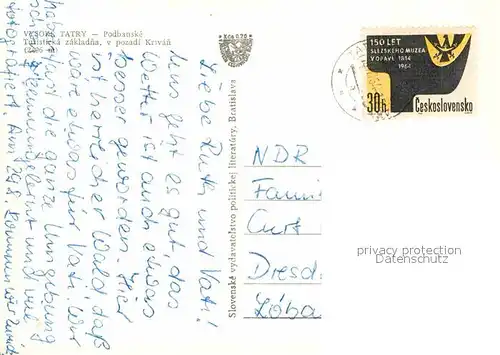 VYSOKÉ TATRY — Podbanské
Turistická základňa, v pozadí Kriváň
Kčs 0,70
Slovenské vydavateľstvo politickej literatúry, Bratislava
150 LET
SLEZSKÉHO MUZEA
V OPAVĚ 1814
1964
30h
Československo
Liebe Ruth und Vati!
Uns geht es gut, das
Wetter ist auch etwas
besser geworden. Hier
ist herrlicher Wald, daß
wäre etwas für Vati. Wir
haben fast die ganze Umgebung
schon kennengelernt und viel
fotografiert. Am 29.8. kommen wir zurück
NDR
Famil
Curt
Dresd
Löba
privacy protection
Datenschutz